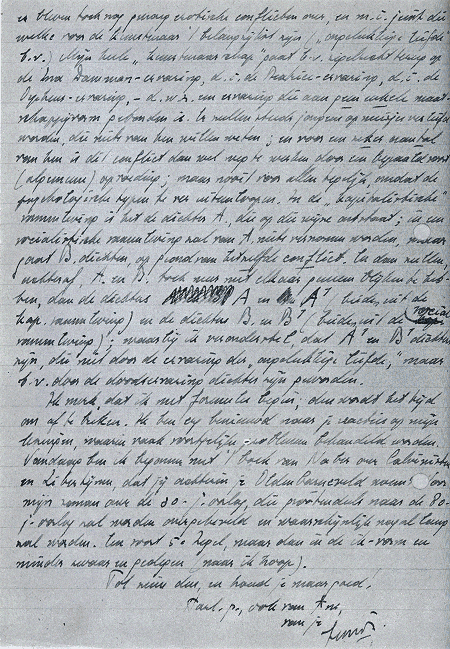 er bleven toch nog genoeg erotische conflicten over, en m.i. juist die
welke voor de kunstenaar 't belangrijkst zijn ("ongelukkige liefde"
b.v.) Mijn heele "kunstenaarschap" gaat b.v. regelrecht terug op
de Ina Damman-ervaring, d.i. de -ervaring, d.i. de
Orpheus-ervaring, – d.w.z. een ervaring die aan geen enkele maat-
schappijvorm gebonden is. Er zullen steeds jongens op meisjes verliefd
worden, die niets van hen willen weten; en voor een zeker aantal
van hen is dit conflict dan wel weg te werken door een bepaald soort
(algemeene) opvoeding; maar nooit voor allen tegelijk, omdat de
psychologische typen te ver uiteenloopen. In de "kapitalistische"
samenleving is het de dichter A, die op die wijze ontstaat; in een
socialistische samenleving zal van A niets vernomen worden, maar
gaat B dichten op grond van hetzelfde conflict. En dan zullen,
achteraf, A en B toch meer met elkaar gemeen blijken te heb-
ben, dan de dichters A en A' (beide uit de
kap. samenleving) en de dichters B en B' (beide uit de sociale
samenleving); waarbij ik veronderstel, dat A' en B' dichters
zijn, die niet door de ervaring der "ongelukkige liefde", maar
b.v. door de doodservaring dichter zijn geworden.
Ik merk dat ik met formules begin; dan wordt het tijd
om af te breken. Ik ben erg benieuwd naar je reacties op mijn
lezingen, waarin vaak soortgelijke problemen behandeld worden.
Vandaag ben ik begonnen met 't boek van Naber over Calvinisten
en Libertijnen, dat jij achterin je Oldenbarnevelt noemt. Voor
mijn roman over de 30-j. oorlog, die grootendeels naar de 80-
j. oorlog zal worden overgeheveld en waarschijnlijk nogal lang
zal worden. Een soort 5e zegel, maar dan in de ik-vorm en
minder zwaar en gedegen (naar ik hoop).
Tot ziens dan, en houd je maar goed.
Hart. gr., ook van Ans,
van je
Simon